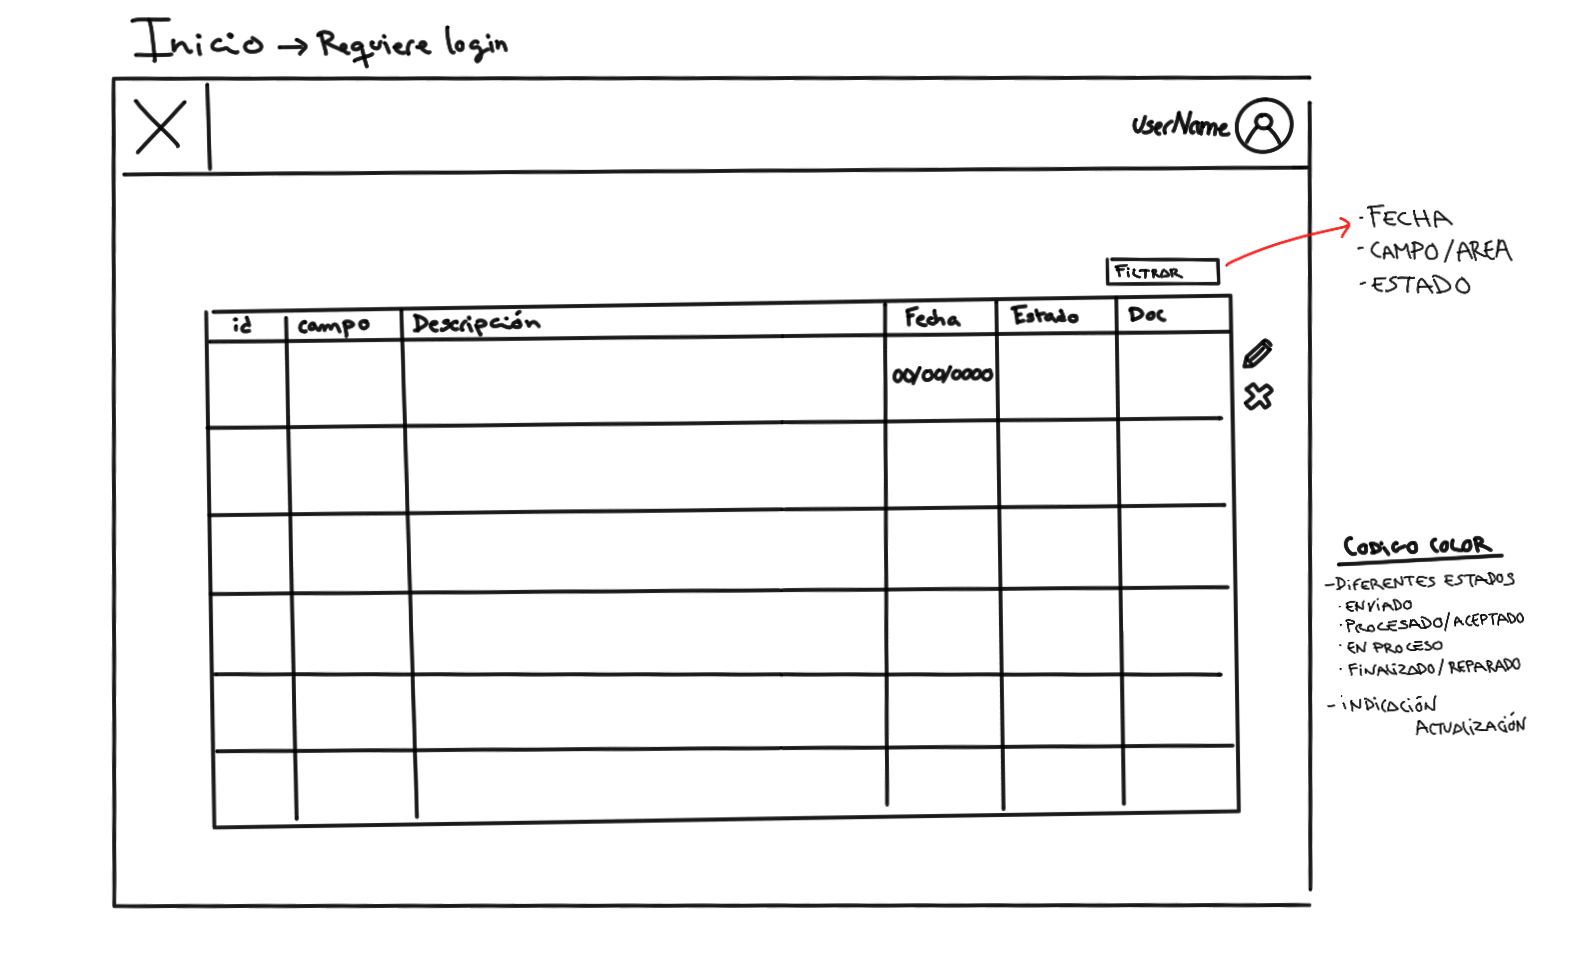 Inicio → Requiere login
UserName
- FECHA
- CAMPO/AREA
- ESTADO
FILTRAR
id campo Descripción Fecha Estado Doc
00/00/0000
CODIGO COLOR
- DIFERENTES ESTADOS
· ENVIADO
· PROCESADO/ACEPTADO
· EN PROCESO
· FINALIZADO/REPARADO
- INDICACIÓN
ACTUALIZACIÓN